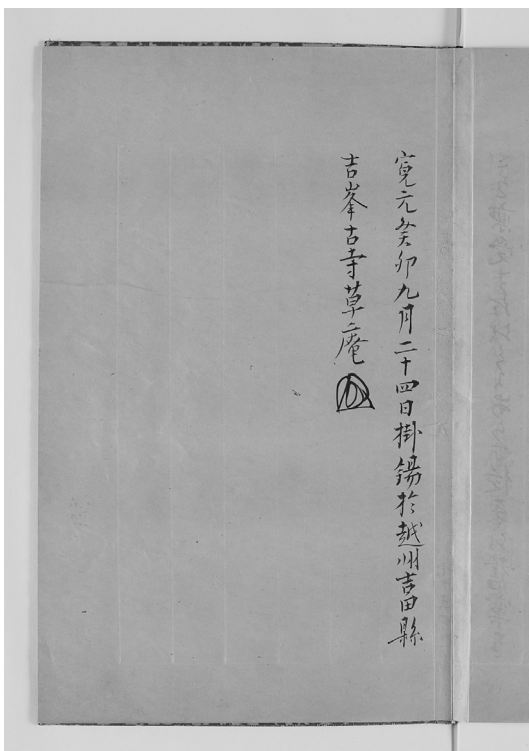 寛元癸卯九月二十四日掛錫於越州吉田縣
吉峯古寺草庵